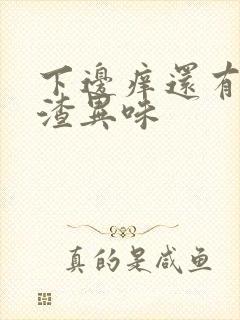 下邊痒還有
渣異味
真的是咸鱼